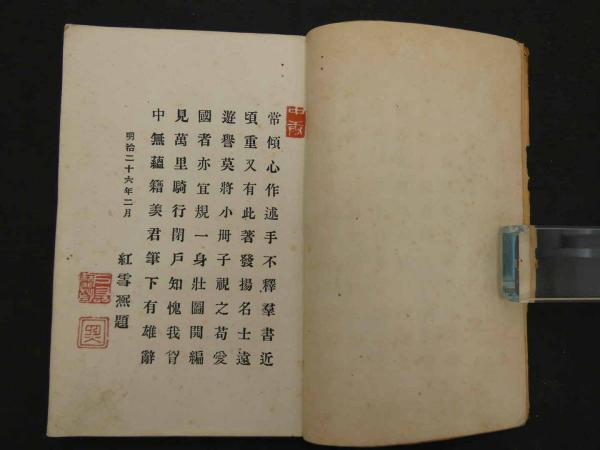 常傾心作述手不釋羣書近
頃重又有此著發揚名士遠
遊譽莫將小冊子視之苟愛
國者亦宜規一身壯圖閲編
見萬里騎行閉戶知愧我胷
中無蘊籍羨君筆下有雄辭
明治二十六年二月
紅雪燕題